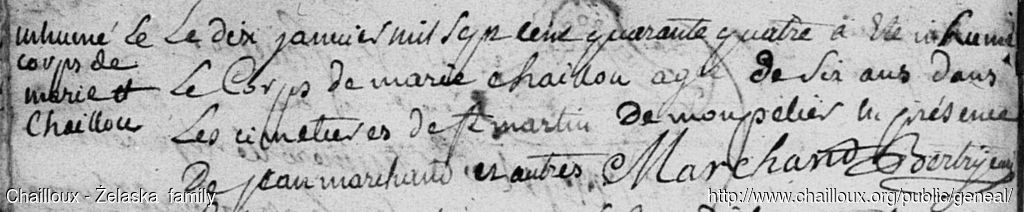 inhumé le
corps de
marie
Chaillou
Le dix janvier mil sept cent quarante quatre a ete inhumé
Le Corps de marie chaillou agee de six ans dans
Les cimetieres de st martin de monpelier en présence
De jean marchand et autres Marchand
Chailloux - Żelaska family
http://www.chailloux.org/public/geneal/